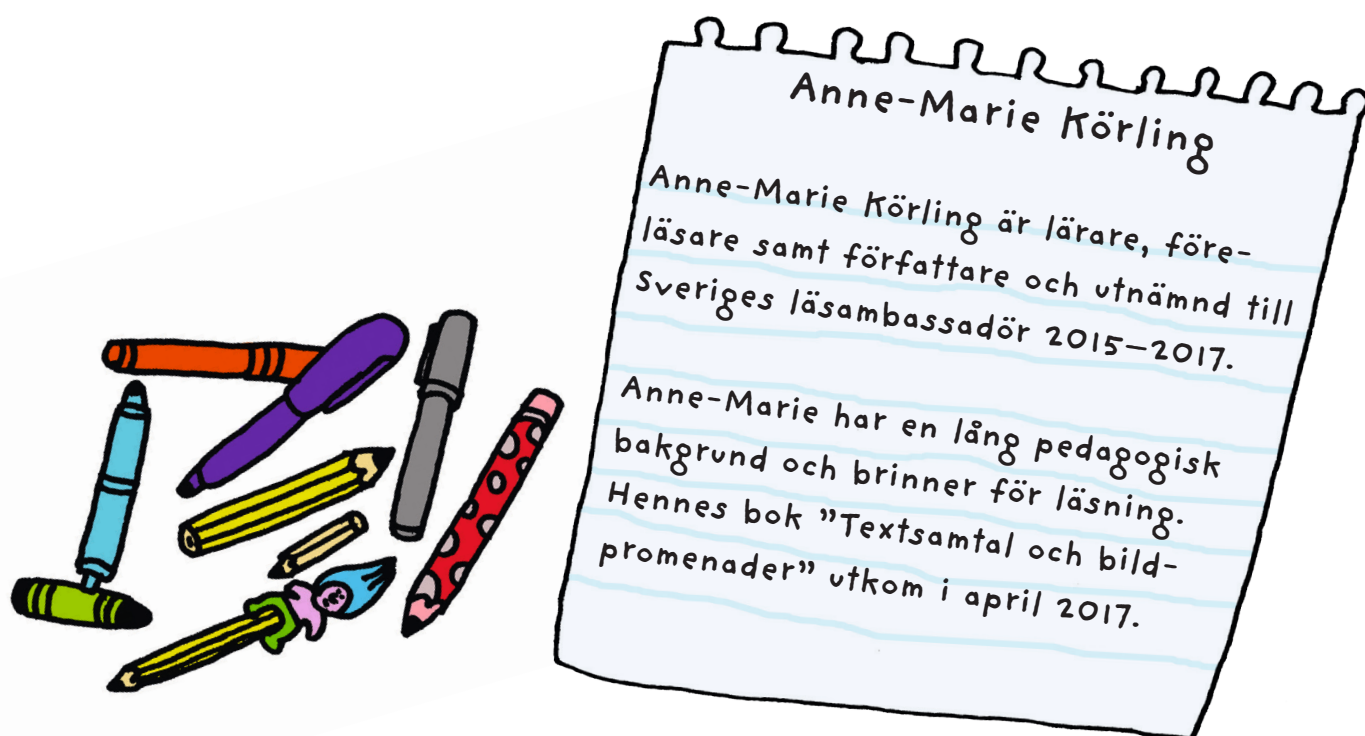 Anne-Marie Körling
Anne-Marie Körling är lärare, före-
läsare samt författare och utnämnd till
Sveriges läsambassadör 2015–2017.
Anne-Marie har en lång pedagogisk
bakgrund och brinner för läsning.
Hennes bok ”Textsamtal och bild-
promenader” utkom i april 2017.